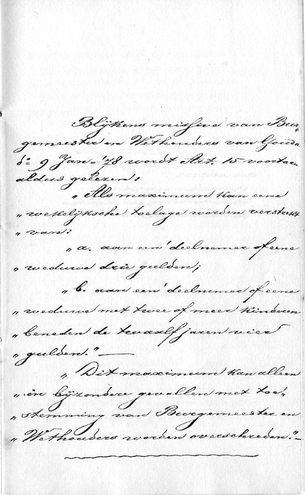 Blijkens missive van Bur-
gemeester en Wethouders van Gouda
d.° 9 Jan. '78 wordt Art. 15 voortaan
aldus gelezen:
„Als maximum kan eene
„wekelijksche toelage worden verstrekt
„van:
„a. aan een deelnemer of eene
„weduwe drie gulden;
„b. aan een deelnemer of eene
„weduwe met twee of meer kinderen
„beneden de twaalf jaren vier
„gulden."—
„Dit maximum kan alleen
„in bijzondere gevallen met toe-
„stemming van Burgemeester en
„Wethouders worden overschreden."—